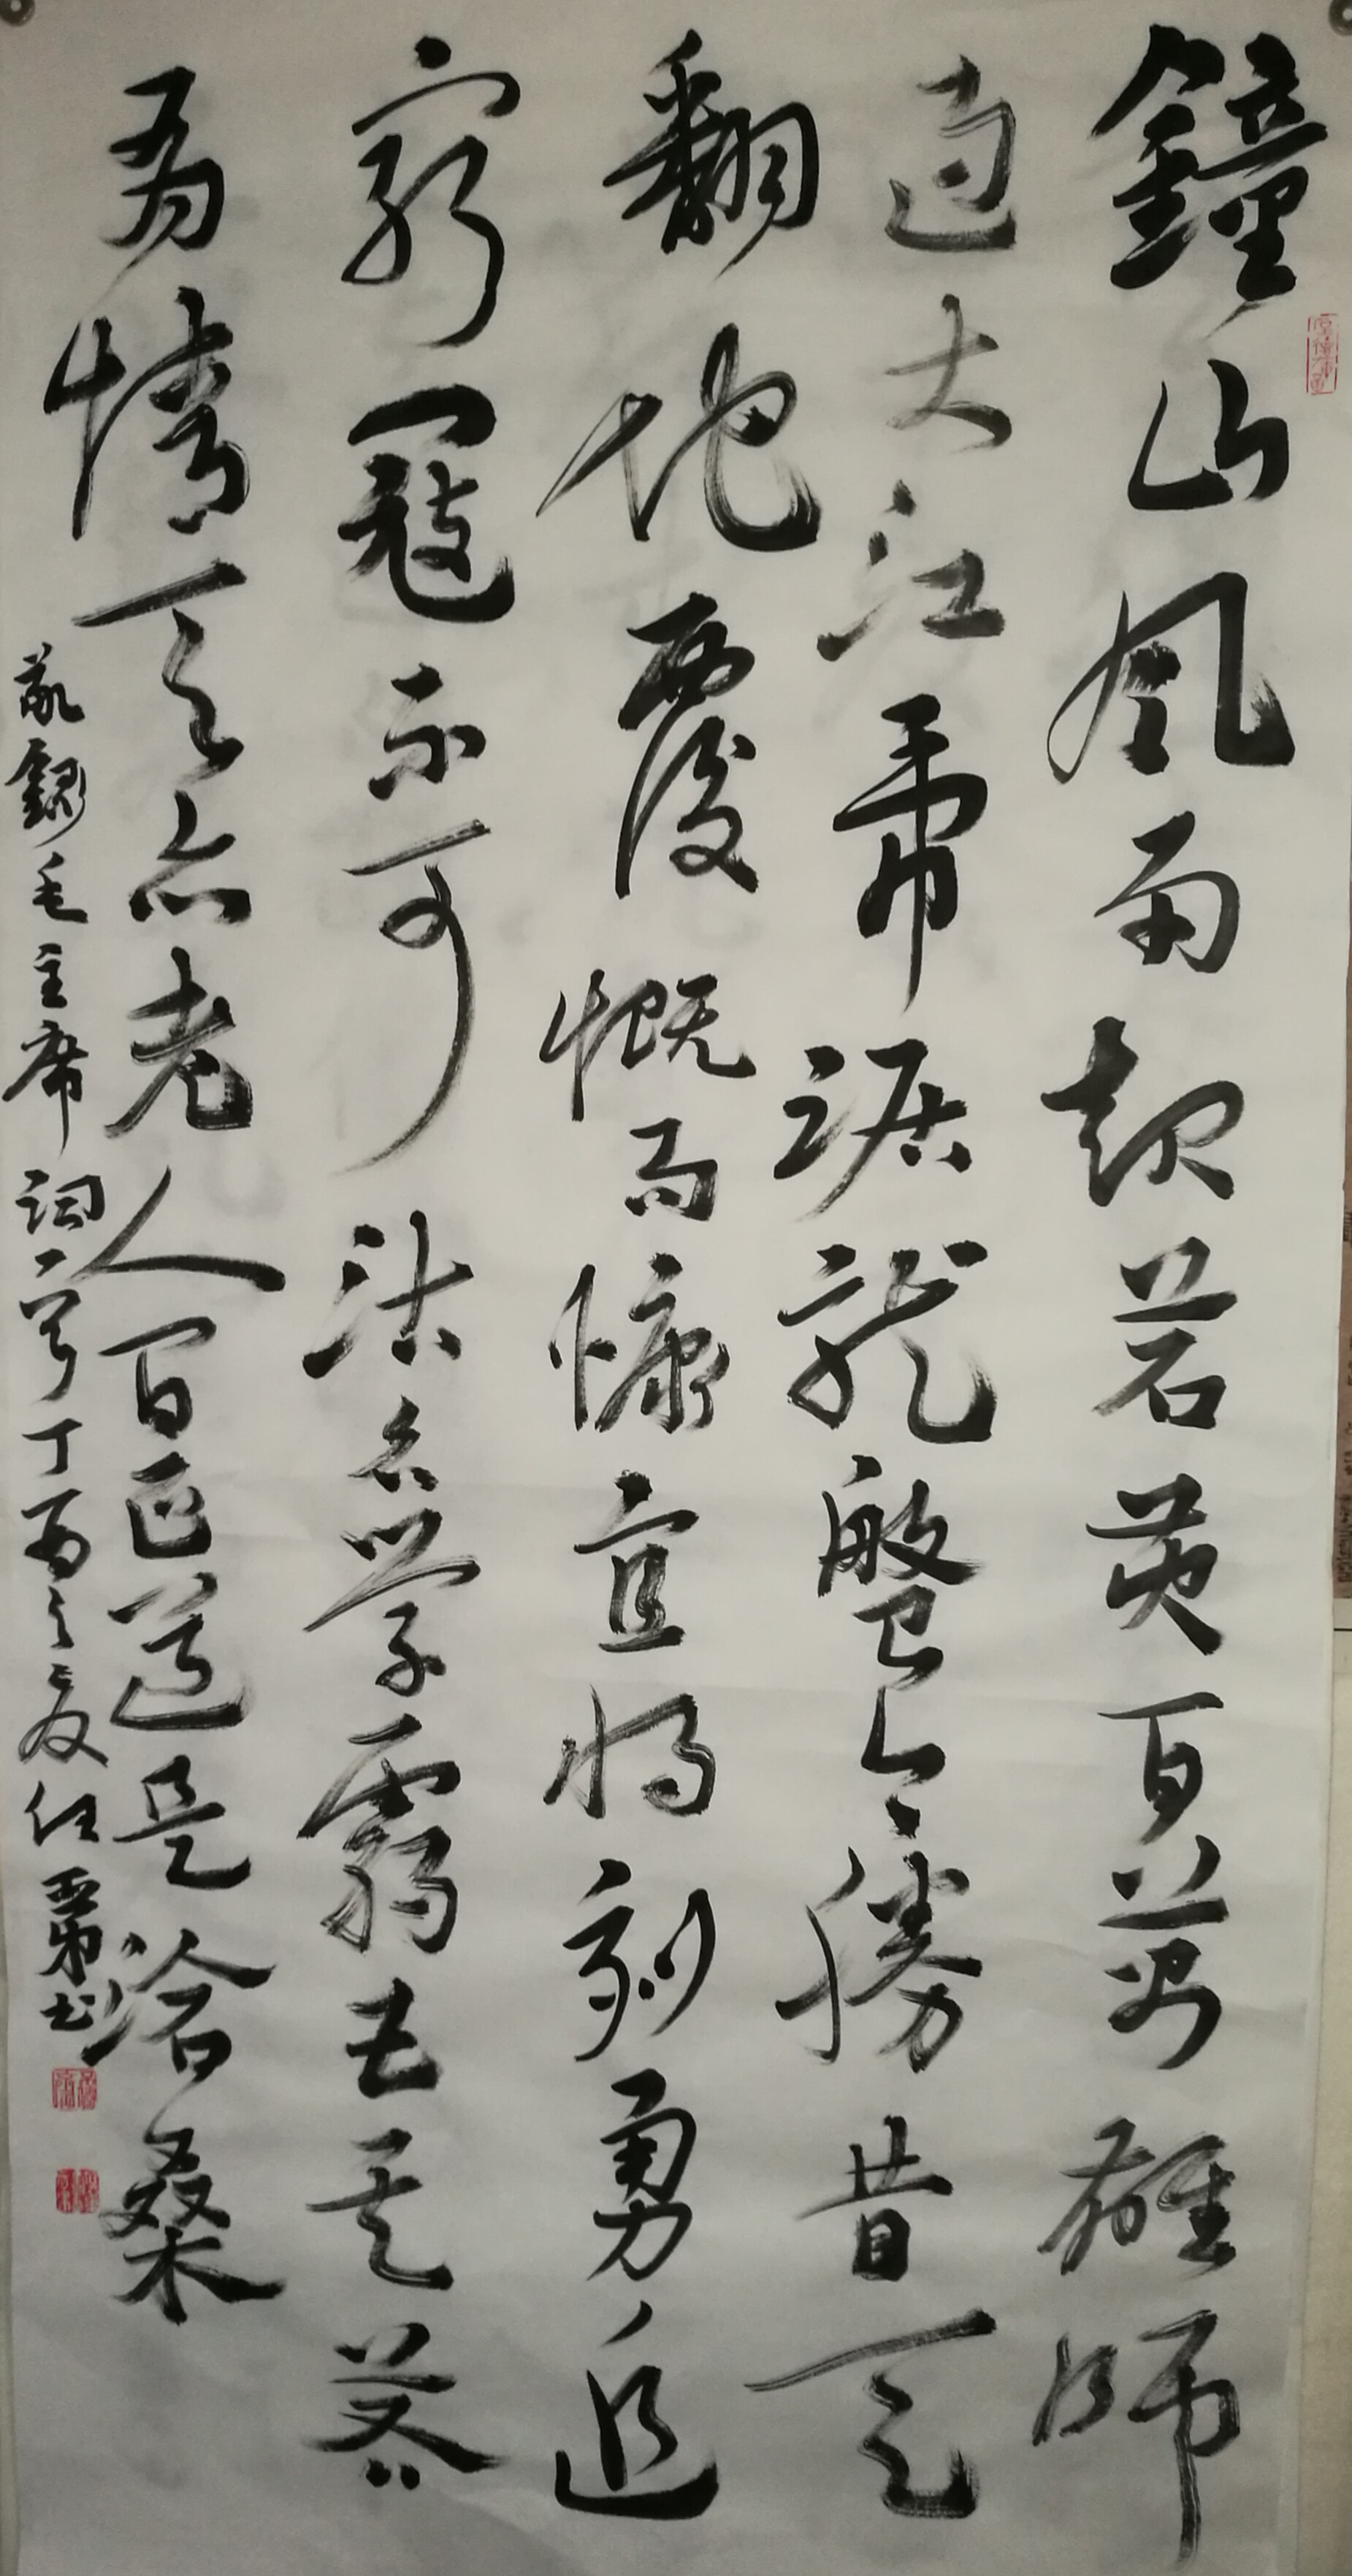 鐘山風雨起蒼黃百萬雄師
過大江虎踞龍盤今勝昔天
翻地覆慨而慷宜將剩勇追
窮寇不可沽名學霸王天若
有情天亦老人間正道是滄桑
敬錄毛主席詞一首丁酉之夏任書